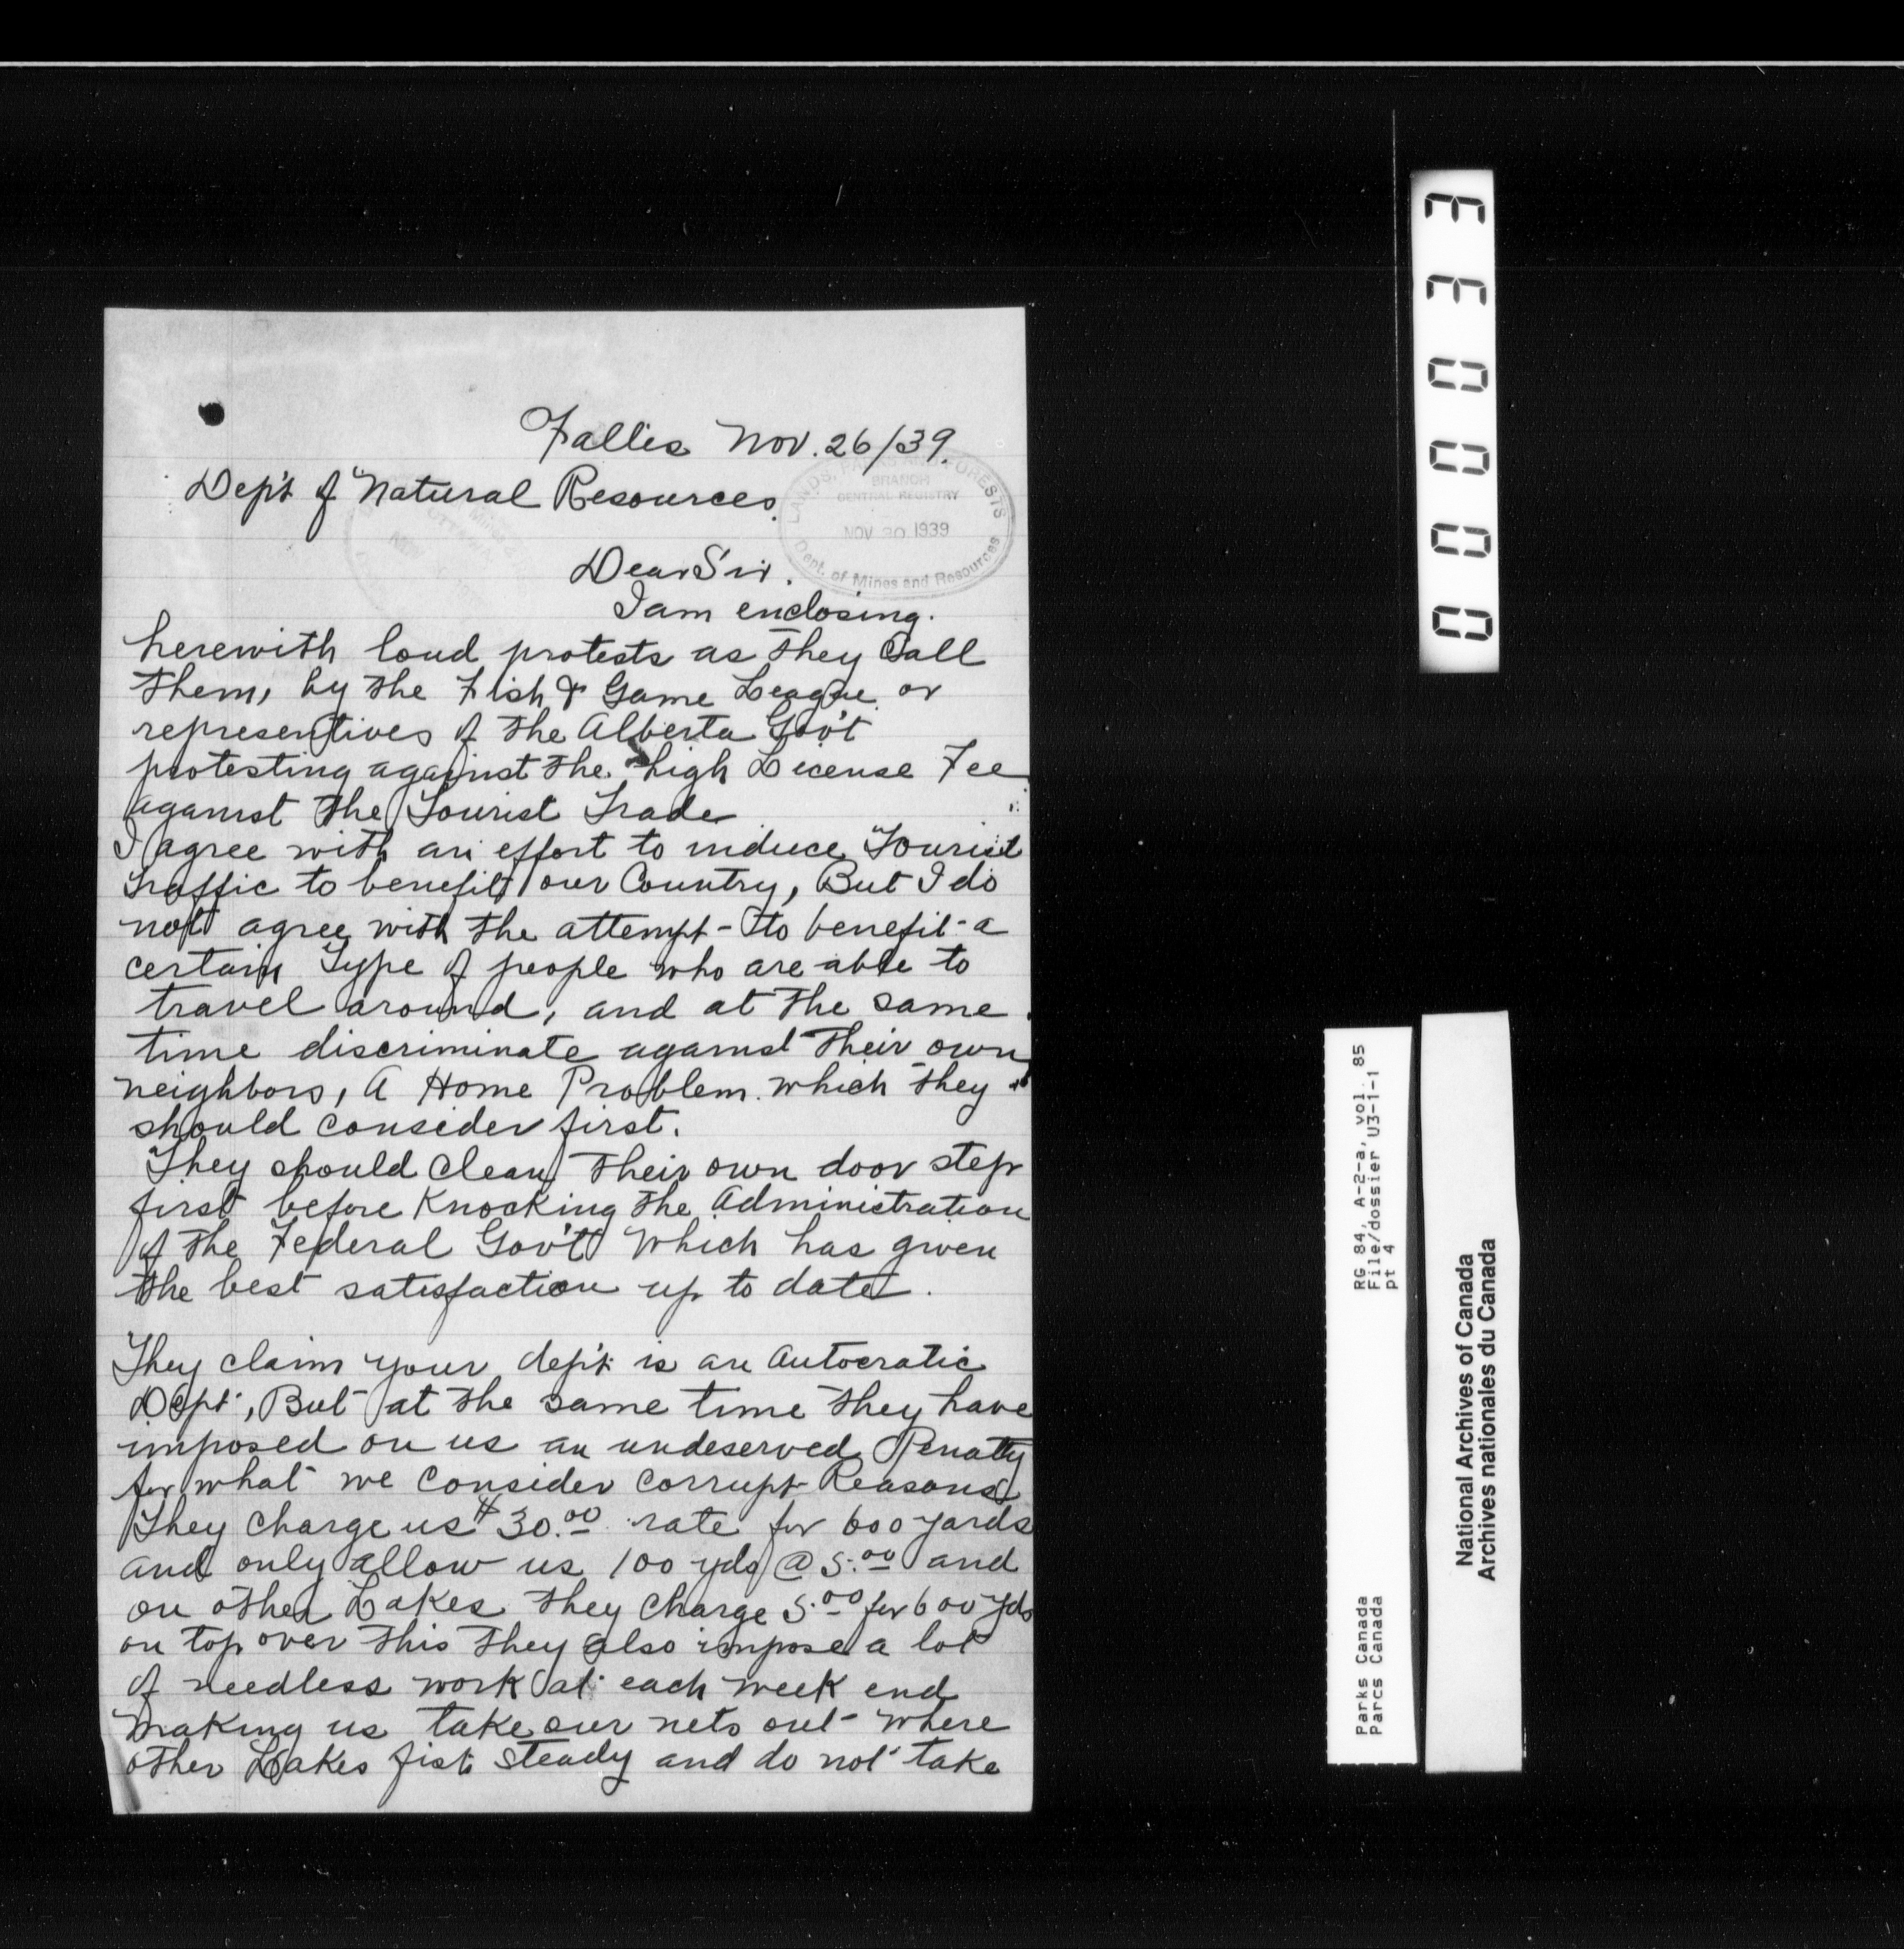 Fallis Nov. 26/39.
Dep't of Natural Resources.
LANDS, PARKS AND FORESTS
BRANCH
CENTRAL REGISTRY
NOV 30 1939
Dept. of Mines and Resources
Dear Sir.
I am enclosing.
herewith loud protests as they Call
them, by the Fish & Game League or
representives of the Alberta Gov't
protesting against the high License Fee
against the Tourist Trade
I agree with an effort to induce Tourist
Traffic to benefit our Country, But I do
not agree with the attempt - to benefit - a
certain Type of people who are able to
travel around, and at the same
time discriminate against Their own
neighbors, A Home Problem which they
should consider first.
They should clean their own door step
first before Knocking the Administration
of the Federal Gov't Which has given
the best satisfaction up to date.
They claim your dep't is an Autocratic
Dept, But at the same time they have
imposed on us an undeserved Penalty
for what we consider corrupt Reasons
They charge us $30.00 rate for 600 yards
and only allow us 100 yds @ 5.00 and
on other Lakes they Charge 5.00 for 600 yds
on top over this they also impose a lot
of needless work at each week end
making us take our nets out - where
other Lakes fish steady and do not take
000033
RG 84, A-2-a, vol. 85
File/dossier U3-1-1
pt 4
Parks Canada
Parcs Canada
National Archives of Canada
Archives nationales du Canada